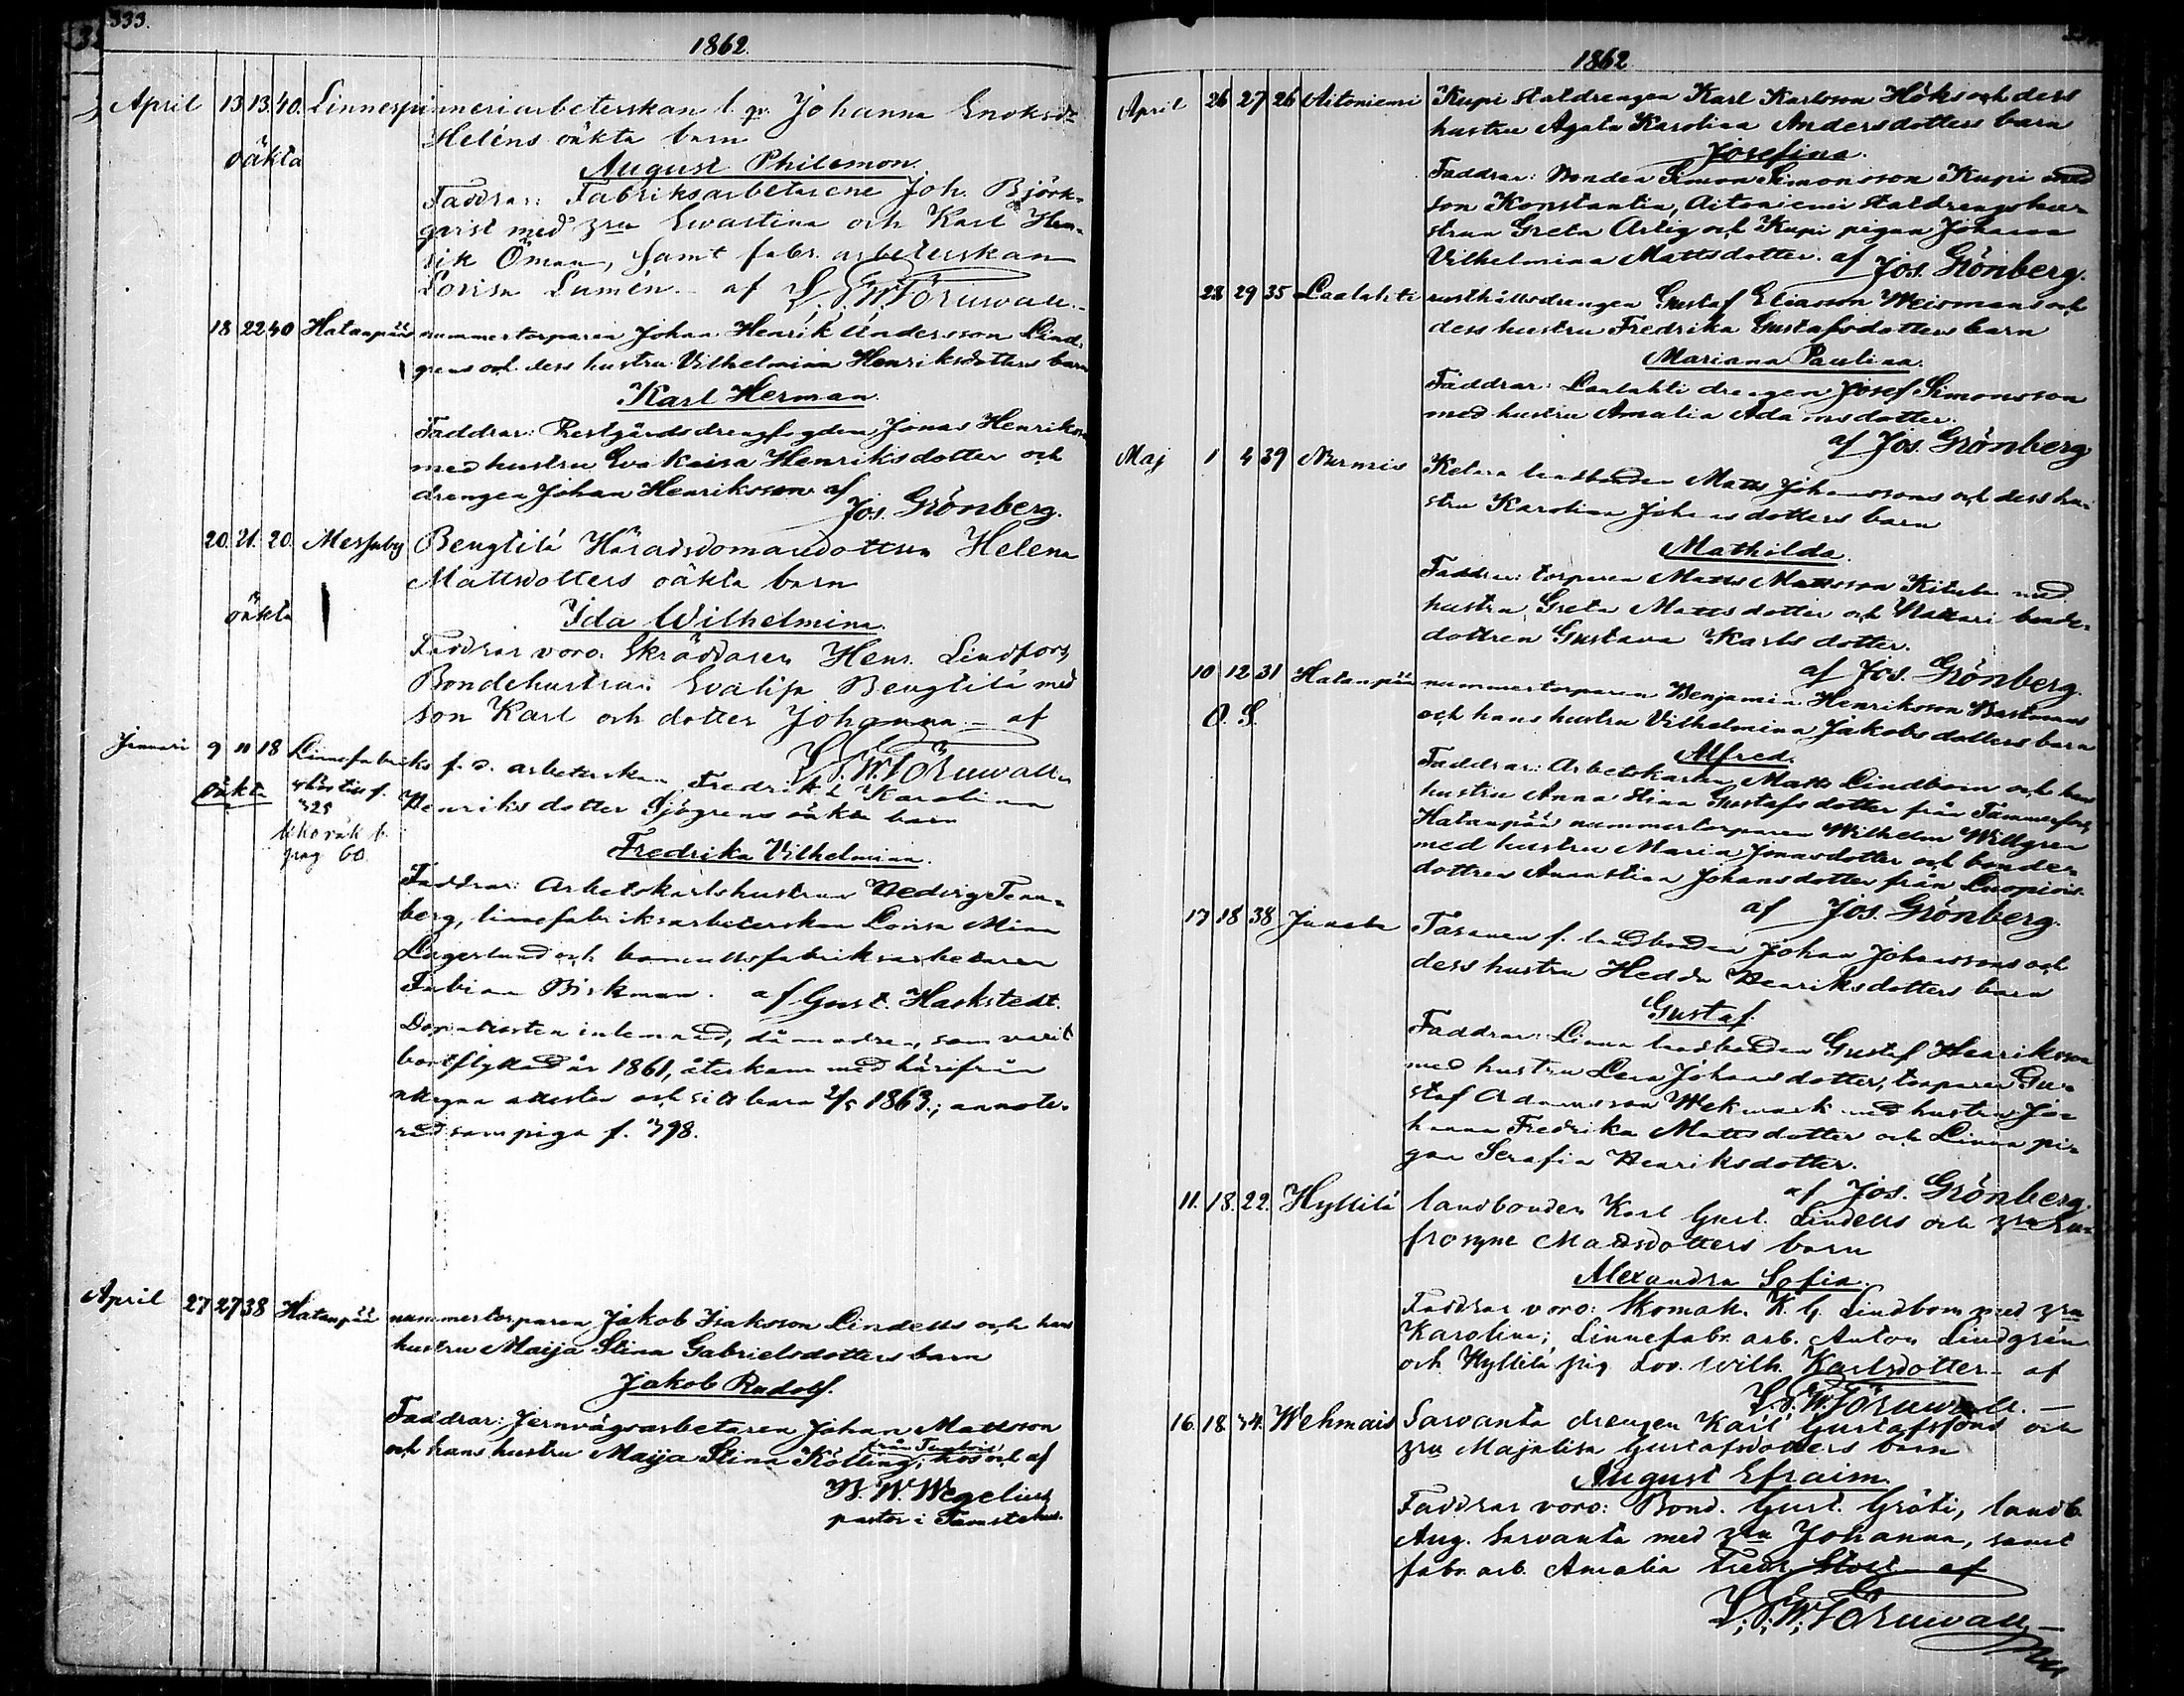 333.
1862.
April 13 13 40. Linnespinneriarbeterskan l. qv. Johanna Enoksdr
Heléns oäkta barn
oäkta
August Philemon.
Faddrar: Fabriksarbetarene Joh. Björk-
qvist med hru Evastina och Karl Hen-
rik Öman, samt fabr. arbeterskan
Lovisa Lumén. af L. J. W. Törnwall.
18 22 40 Hatanpää nummertorparen Johan Henrik Andersson Lind-
grens och dess hustru Vilhelmina Henriksdotters barn
Karl Herman.
Faddrar: Prestgårdsdrengfogden Jonas Henriksson
med hustru Eva Kaisa Henriksdotter och
drengen Johan Henriksson af
Jos. Grönberg.
20. 21. 20. Messuby Bengtilä Häradsdomaredottren Helena
Mattsdotters oäkta barn
oäkta
Ida Wilhelmina.
Faddrar voro: Skräddaren Henr. Lindfors,
Bondehustrun Evalisa Bengtilä med
son Karl och dotter Johanna – af
L. J. W. Törnwall
Januari 9 11 18 Linnefabriks f. d. arbeterskan Fredrika Karolina
Henriksdotter Sjögrens oäkta barn
oäkta
pag 60.
Fredrika Vilhelmina.
Faddrar: Arbetskarlshustrun Hedvig Tenn-
berg, linnefabriksarbeterskan Lovisa Mina
Lagerlund och bomullsfabriksarbetaren
Fabian Birkman. af Gust. Hackstedt.
Dopattesten inlemnad, då modren, som varit
bortflyttad år 1861, återkom med härifrån
attest och sitt barn 2/5 1863; annote-
rad som piga f. 398.
April 27 27 38 Hatanpää nummertorparen Jakob Isaksson Lindells och hans
hustru Maija Stina Gabrielsdotters barn
Jakob Rudolf.
Faddrar: Jernvägsarbetaren Johan Mattsson
och hans hustru Maija Stina Kölling, från af
W. Wegelius
pastor i Tavastehus.
1862
April 26 27 26 Aitoniemi Kupi statdrengen Karl Karlsson Höks och dess
hustru Agata Karolina Andersdotters barn
Josefina.
Faddrar: Bonden Simon Simonsson Kupi med
son Konstantin, Aitoniemi statdrengshu-
strun Greta Artig och Kupi pigan Johanna
Vilhelmina Mattsdotter. af Jos. Grönberg.
28 29 35 Laalahti rusthållsdrengen Gustaf Eliasson Weismans och
dess hustru Fredrika Gustafsdotters barn
Mariana Paulina.
Faddrar: Laalahti drengen Josef Simonsson
med hustru Amalia Adamsdotter.
af Jos. Grönberg
Maj 1 4 39 Nurmis Ketara landbonden Matts Johanssons och dess hu-
stru Karolina Johansdotters barn
Mathilda.
Faddrar: torparen Matts Mattsson Kitula med
hustru Greta Mattsdotter och Nattari bonde-
dottren Gustava Karlsdotter.
af Jos. Grönberg.
10 12 31 Hatanpää nummertorparen Benjamin Henriksson Bastmans
och hans hustru Vilhelmina Jakobsdotters barn
O. S.
Alfred.
Faddrar: Arbetskarlen Matts Lindbom och hans
hustru Anna Stina Gustafsdotter från Tammerfors,
Hatanpää nummertorparen Wilhelm Willgren
med hustru Maria Jonasdotter och bonde-
dottren Annastina Johansdotter från Luopiois.
af Jos. Grönberg.
17 18 38 Junsta Tasanen f. landbonden Johan Johanssons och
dess hustru Hedda Henriksdotters barn
Gustaf.
Faddrar: Linna landbonden Gustaf Henriksson
med hustru Lena Johansdotter, torparen Gu-
staf Adamsson Wekmark med hustru Jo-
hanna Fredrika Mattsdotter och Linna pi-
gan Serafia Henriksdotter.
af Jos. Grönberg.
11. 18. 22. Hyllilä landbonden Karl Gust. Lindells och hru Eu-
frosyne Mattsdotters barn
Alexandra Sofia.
Faddrar voro: Skomak. K. G. Lindbom med hru
Karolina; Linnefabr. arb. Anton Lindgrén
och Hyllilä pig. Lov. Wilh. Karlsdotter – af
L. J. W. Törnwall. –
16. 18. 34. Wehmais Sarvanta drengen Karl Gustafssons och
hru Majalisa Gustafsdotters barn
August Efraim.
Faddrar voro: Bond. Gust. Gröti, landb.
Aug. Sarvanta med hru Johanna, samt
fabr. arb. Amalia Fredr. Stolt – af
L. J. W. Törnwall –